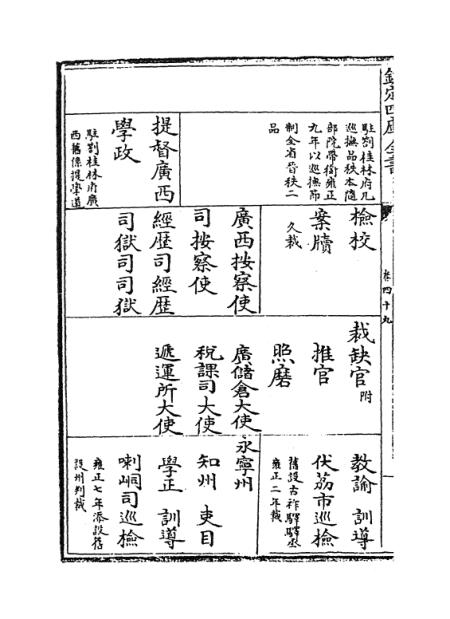 欽定四庫全書
卷四十九
駐劄桂林府凡
巡撫品秩本隨
部院帶銜雍正
九年以巡撫節
制全省晉秩二
品
提督廣西
學政
駐劄桂林府廣
西舊係提學道
檢校
案牘
久裁
廣西按察使
司按察使
經歴司經歴
司獄司司獄
裁缺官附
推官
照磨
廣儲倉大使
税課司大使
遞運所大使
教諭 訓導
伏荔市巡檢
舊設古祚驛驛丞
雍正二年裁
永寧州
知州 吏目
學正 訓導
喇峒司巡檢
雍正七年添設舊
設州判裁